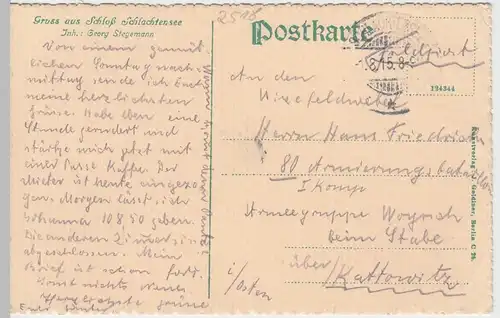 Gruss aus Schloß Schlachtensee
Inh.: Georg Stegemann
2518
Postkarte
Feldpost
194344
Von einem gemüt-
lichen Sonntag nach-
mittag sende ich Euch
meine herzlichsten
Grüsse. Habe eben eine
Stunde gerudert und
stärke mich jetzt mit
einer Tasse Kaffee. Der
Mieter ist heute eingezo-
gen. Morgen lässt sich
Johanna 10 8 50 geben.
Die anderen Zimmer sind
abgeschlossen. Mein
Brief ist schon fort.
Sonst nichts neues.
Herzlichste Grüsse
Euer
Wann kommt denn
An den
Vizefeldwebel
Herrn Hans Friedrich
80 Armierungsbataillon
I Komp
Armeegruppe Woyrsch
beim Stabe
über
Kattowitz
i/Osten
Goldiner, Berlin C 28.